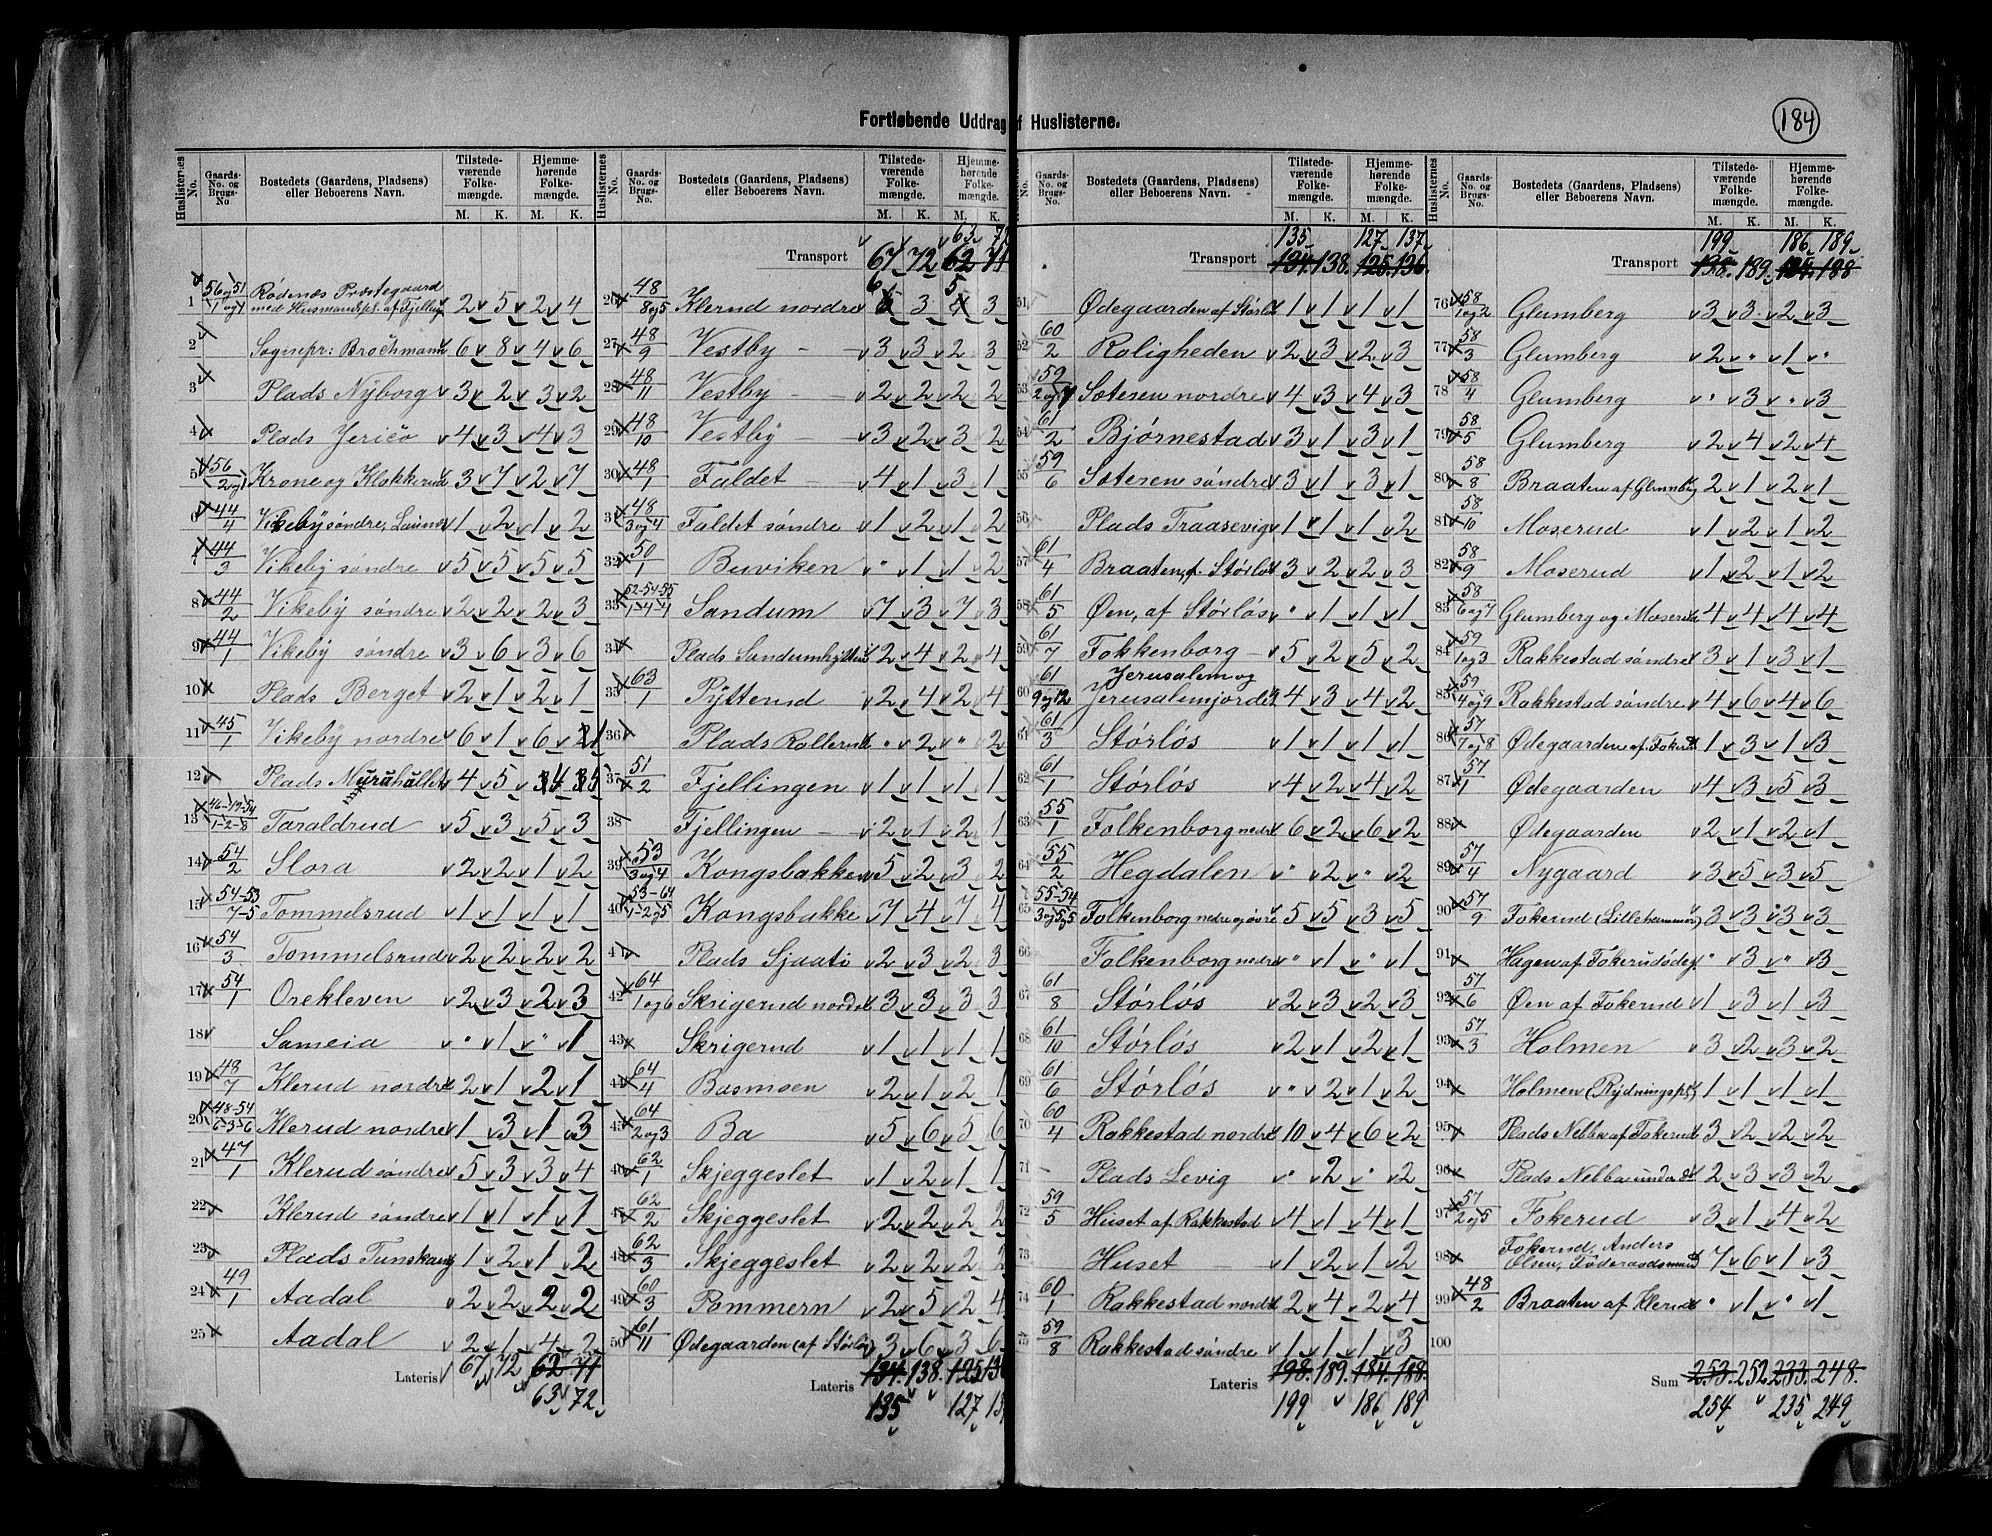 184
Fortløbende Uddrag af Huslisterne.
Huslisternes No. Gaards-No. og Brugs-No. Bostedets (Gaardens, Pladsens) eller Beboerens Navn. Tilstedeværende Folkemængde. M. K. Hjemmehørende Folkemængde. M. K.
1 56 og 51 / 1 og 1 Rødenæs Præstegaard med Husmandspl. af Fjelling 2 5 2 4
2 Sognepr: Brochmann 6 8 4 6
3 Plads Nyborg 3 2 3 2
4 Plads Jerico 4 3 4 3
5 56/2 og 1 Krone og Klokkerud 3 7 2 7
6 44/4 Vikeby søndre, 1 2 1 2
7 44/3 Vikeby søndre 5 5 5 5
8 44/2 Vikeby søndre 2 2 2 3
9 44/1 Vikeby søndre 3 6 3 6
10 Plads Berget 2 1 2 1
11 45/1 Vikeby nordre 6 1 6 1
12 Plads Murahullet 4 5 4 5
13 46-49-54 / 1-2-8 Taraldrud 5 3 5 3
14 54/2 Slora 2 2 1 2
15 54-53 / 7-5 Tommelsrud 1 1 1 1
16 54/3 Tommelsrud 2 2 2 2
17 54/1 Orekleven 2 3 2 3
18 Sameia " 1 " 1
19 48/7 Klerud nordre 2 1 2 1
20 48-54 / 6-3-6 Klerud nordre 1 3 1 3
21 47/1 Klerud søndre 5 3 3 4
22 Klerud søndre 1 1 1 1
23 Plads Tunskaug 1 2 1 2
24 49/1 Aadal 2 2 2 2
25 Aadal 2 1 4 2
Lateris 67 72 62 71
63 72
Huslisternes No. Gaards-No. og Brugs-No. Bostedets (Gaardens, Pladsens) eller Beboerens Navn. Tilstedeværende Folkemængde. M. K. Hjemmehørende Folkemængde. M. K.
63
Transport 67 72 62 71
26 48/8 og 5 Klerud nordre 6 3 5 3
27 48/9 Vestby 3 3 2 3
28 48/11 Vestby 2 2 2 2
29 48/10 Vestby 3 2 3 2
30 48/1 Faldet 4 1 3 1
31 48/3 og 4 Faldet søndre 1 2 1 2
32 50/1 Buviken " 1 1 2
33 52-54-55 / 1-4-4 Sandum 7 3 7 3
34 Plads Sandumhytten 2 4 2 4
35 63/1 Pytterud 2 4 2 4
36 Plads Rollerud " 2 " 2
37 51/2 Fjellingen 1 1 1 1
38 Fjellingen 2 1 2 1
39 53/3 og 4 Kongsbakken 5 2 3 2
40 53-64 / 1-2 og 5 Kongsbakke 7 4 7 4
41 Plads Sjaati 2 3 2 3
42 64/1 og 6 Skrigerud nordre 3 3 3 3
43 Skrigerud 1 1 1 1
44 64/4 Basmoen 2 1 2 1
45 64/2 og 3 Ba 5 6 5 6
46 62/1 Skjeggeslet 1 2 1 1
47 62/2 Skjeggeslet 2 2 2 2
48 62/3 Skjeggeslet 2 2 2 2
49 60/3 Pommern 2 5 2 4
50 61/11 Ødegaarden (af Störlös) 3 6 3 6
Lateris 134 138 125 13
135 127 13
Huslisternes No. Gaards-No. og Brugs-No. Bostedets (Gaardens, Pladsens) eller Beboerens Navn. Tilstedeværende Folkemængde. M. K. Hjemmehørende Folkemængde. M. K.
135 127 137
Transport 134 138 125 136
51 Ødegaarden af Störlös 1 1 1 1
52 60/2 Roligheden 2 3 2 3
53 59/2 og 7 Soteren nordre 4 3 4 3
54 61/2 Bjørnestad 3 1 3 1
55 59/6 Soteren søndre 3 1 3 1
56 Plads Traasevig 1 1 1 2
57 61/4 Braaten, af Störlös 3 2 2 3
58 61/5 Øen, af Störlös " 1 1 1
59 61/7 Fokkenborg 5 2 5 2
60 61/9 og 12 Jerusalem og Jerusalemjordet 4 3 4 2
61 61/3 Störlös 1 1 1 1
62 61/1 Störlös 4 2 4 2
63 55/1 Folkenborg nedre 6 2 6 2
64 55/2 Hegdalen " 2 " 2
65 55-54 / 3 og 5 og 5 Folkenborg nedre og øvre 5 5 3 5
66 Folkenborg nedre " 1 " 1
67 61/8 Störlös 2 3 2 3
68 61/10 Störlös 2 1 2 1
69 61/6 Störlös " 2 1 2
70 60/4 Rakkestad nordre 10 4 6 2
71 Plads Levig " 2 " 2
72 59/5 Huset af Rakkestad 4 1 4 1
73 Huset 1 2 1 2
74 60/1 Rakkestad nordre 2 4 2 4
75 59/8 Rakkestad søndre 1 1 1 3
Lateris 198 189 184 188
199 186 189
Huslisternes No. Gaards-No. og Brugs-No. Bostedets (Gaardens, Pladsens) eller Beboerens Navn. Tilstedeværende Folkemængde. M. K. Hjemmehørende Folkemængde. M. K.
199 186 189
Transport 198 189 184 188
76 58/1 og 2 Glumberg 3 3 2 3
77 58/3 Glumberg 2 " 1 "
78 58/4 Glumberg " 3 " 3
79 58/5 Glumberg 2 4 2 4
80 58/8 Braaten af Glumberg 2 1 2 1
81 58/10 Moserud 1 2 1 2
82 58/9 Moserud 1 2 1 2
83 58/6 og 7 Glumberg og Moserud 4 4 4 4
84 59/1 og 3 Rakkestad søndre 3 1 3 1
85 59/4 og 9 Rakkestad søndre 4 6 4 6
86 57/7 og 8 Ødegaarden af Fokerud 1 3 1 3
87 57/1 Ødegaarden 4 3 5 3
88 Ødegaarden 2 1 2 1
89 57/4 Nygaard 3 5 3 5
90 57/9 Fokerud (Lillehammer) 3 3 3 3
91 Hagen af Fokerudødeg. " 3 " 3
92 57/6 Øen af Fokerud 1 3 1 3
93 57/3 Holmen 3 2 3 2
94 Holmen (Rydningspl.) 1 1 1 1
95 Plads Nebba af Fokerud 3 2 2 2
96 Plads Nebba under do 2 3 3 2
97 57/2 og 5 Fokerud 3 1 4 2
98 Fokerud, Anders Olsen, Föderaadsmand 7 6 1 3
99 48/2 Braaten af Klerud " 1 " 1
100
Sum 253 252 233 248
254 235 249